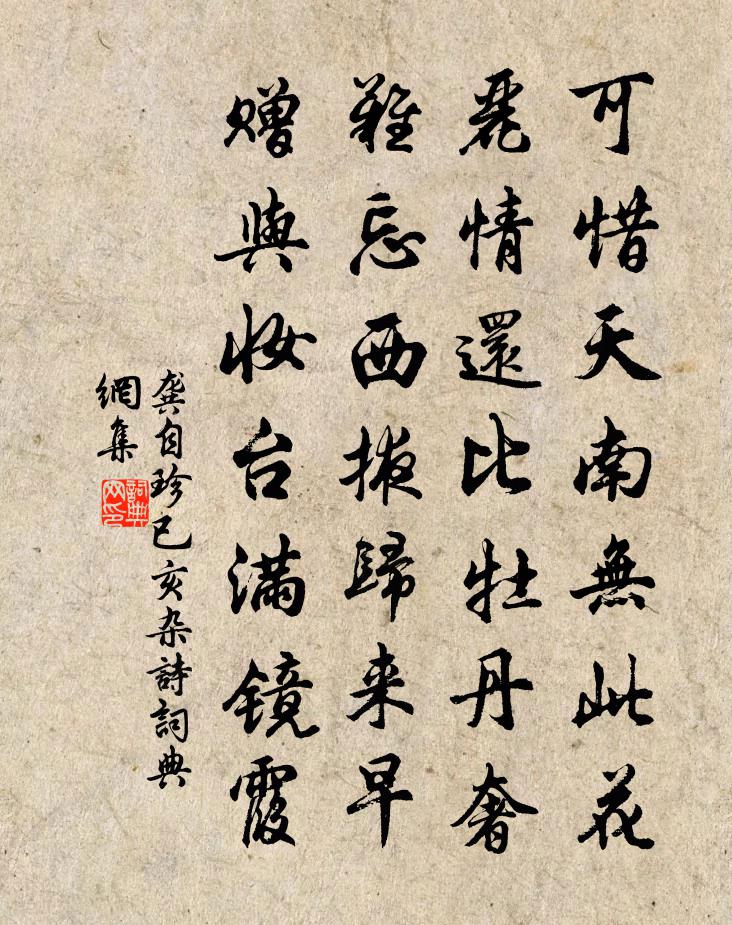 可惜天南無此花
麗情還比牡丹奢
難忘西掖歸来早
贈與妝台滿鏡霞
龔自珍已亥杂詩詞典
網集
詞典
网印